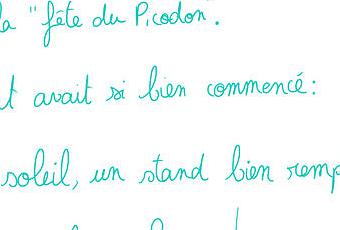 la "fête du Picodon".
t avait si bien commencé:
soleil, un stand bien remp